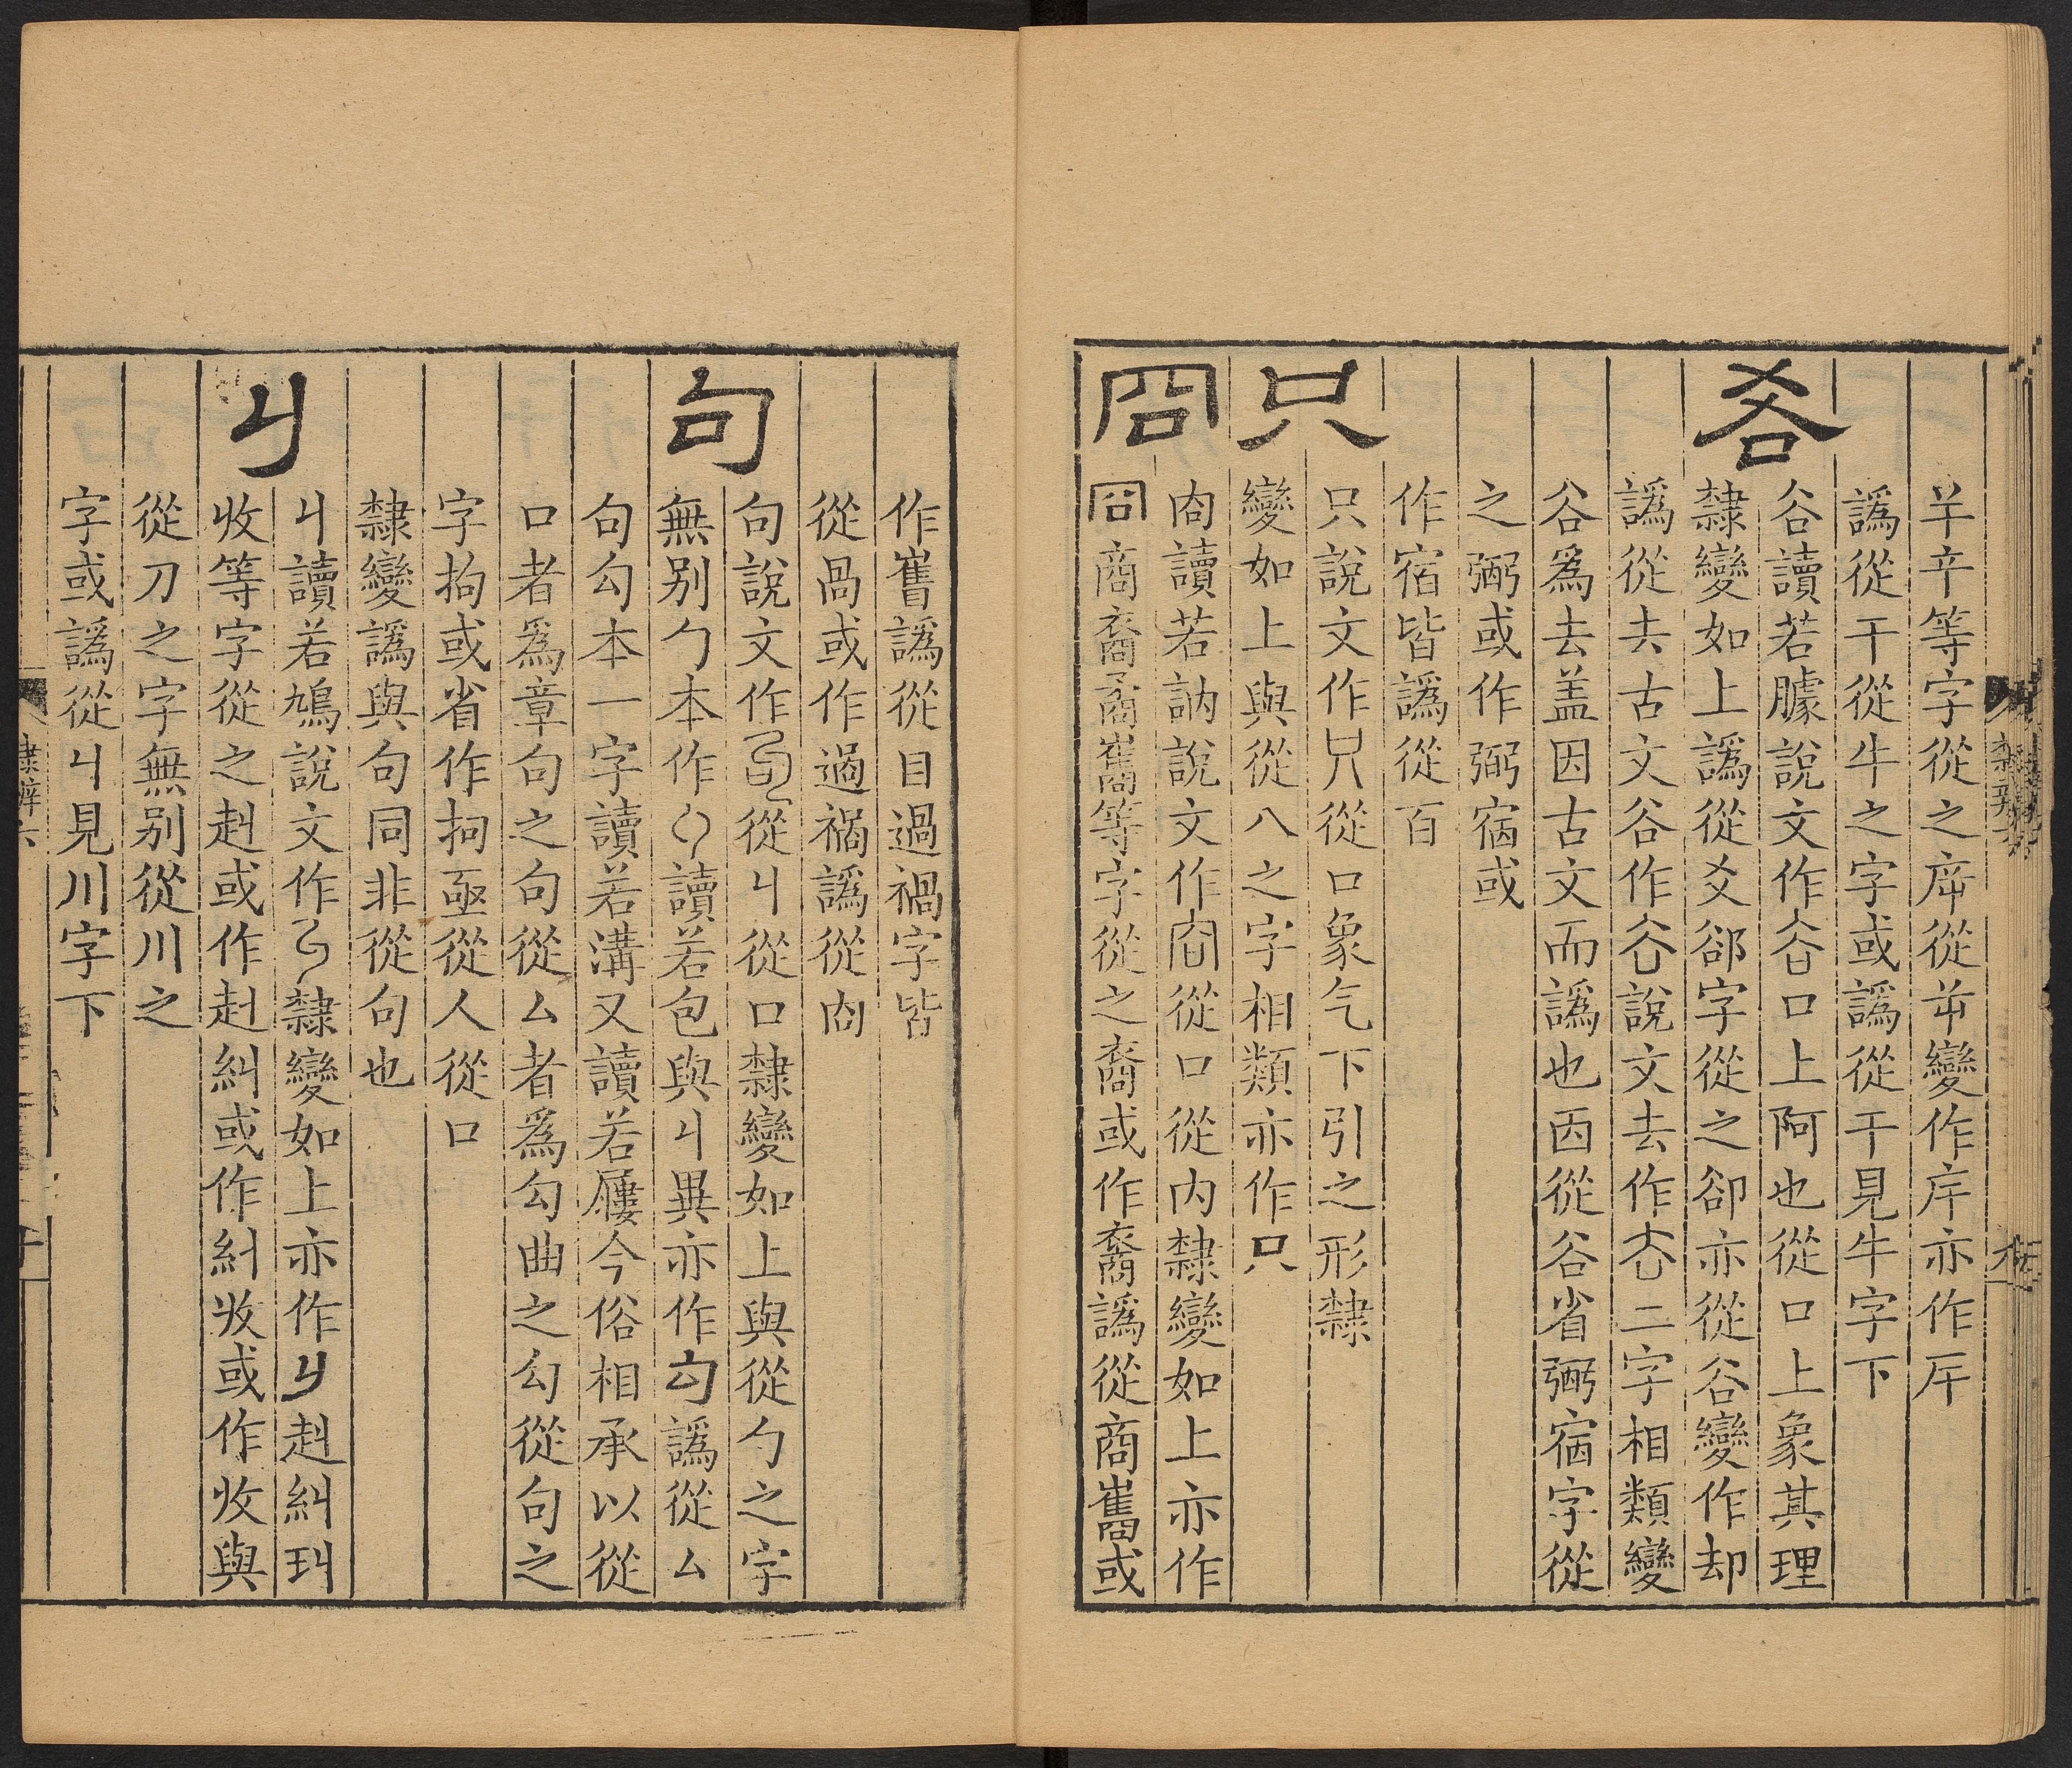 羊辛等字從之㡿從屰變作庠亦作斥
譌從干從牛之字或譌從干見牛字下
谷
谷讀若臄說文作口上阿也從口上象其理
隸變如上譌從爻郤字從之卻亦從谷變作却
譌從去古文谷作說文去作二字相類變
谷爲去盖因古文而譌也㐁從谷省弼宿字從
之弼或作弼宿或
作宿皆譌從百
只
只說文作只從口象气下引之形隸
變如上與從八之字相類亦作只
㕯
㕯讀若訥說文作㕯從口從內隸變如上亦作
㕯商裔矞巂等字從之裔或作裔譌從商巂或
作巂譌從目過禍字皆
從咼或作過禍譌從㕯
句
句說文作從丩從口隸變如上與從勹之字
無别勹本作讀若包與丩異亦作勾譌從厶
句勾本一字讀若溝又讀若屨今俗相承以從
口者爲章句之句從厶者爲勾曲之勾從句之
字拘或省作抲亟從人從口
隸變譌與句同非從句也
丩
丩讀若鳩說文作隸變如上亦作赳糾㺩
收等字從之赳或作赳糾或作糾收或作收與
從刀之字無别從川之
字或譌從丩見川字下
隸辨六